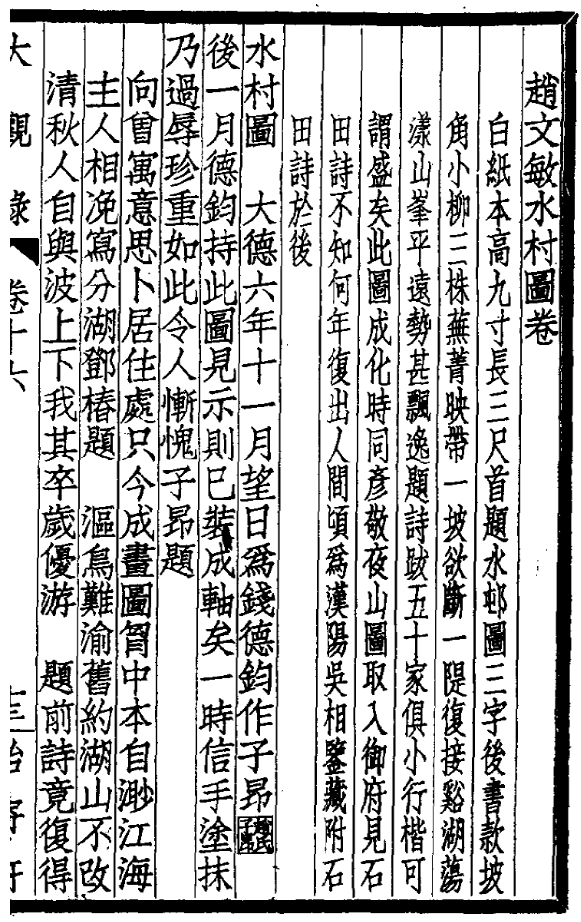 趙文敏水村圖卷
白紙本高九寸長三尺首題水邨圖三字後書款坡
角小柳二株蕪菁映帶一坡欲斷一隄復接谿湖蕩
漾山峯平遠勢甚飄逸題詩跋五十家俱小行楷可
謂盛矣此圖成化時同彥敬夜山圖取入御府見石
田詩不知何年復出人間頃為漢陽吳相鑒藏附石
田詩於後
水村圖　大德六年十一月望日為錢德鈞作子昂
後一月德鈞持此圖見示則已裝成軸矣一時信手塗抹
乃過辱珍重如此令人慚愧子昂題
向曾寓意思卜居住處只今成畫圖胷中本自渺江海
主人相浼寫分湖鄧椿題　漚鳥難渝舊約湖山不改
清秋人自與波上下我其卒歲優游　題前詩竟復得
大觀錄　卷十六